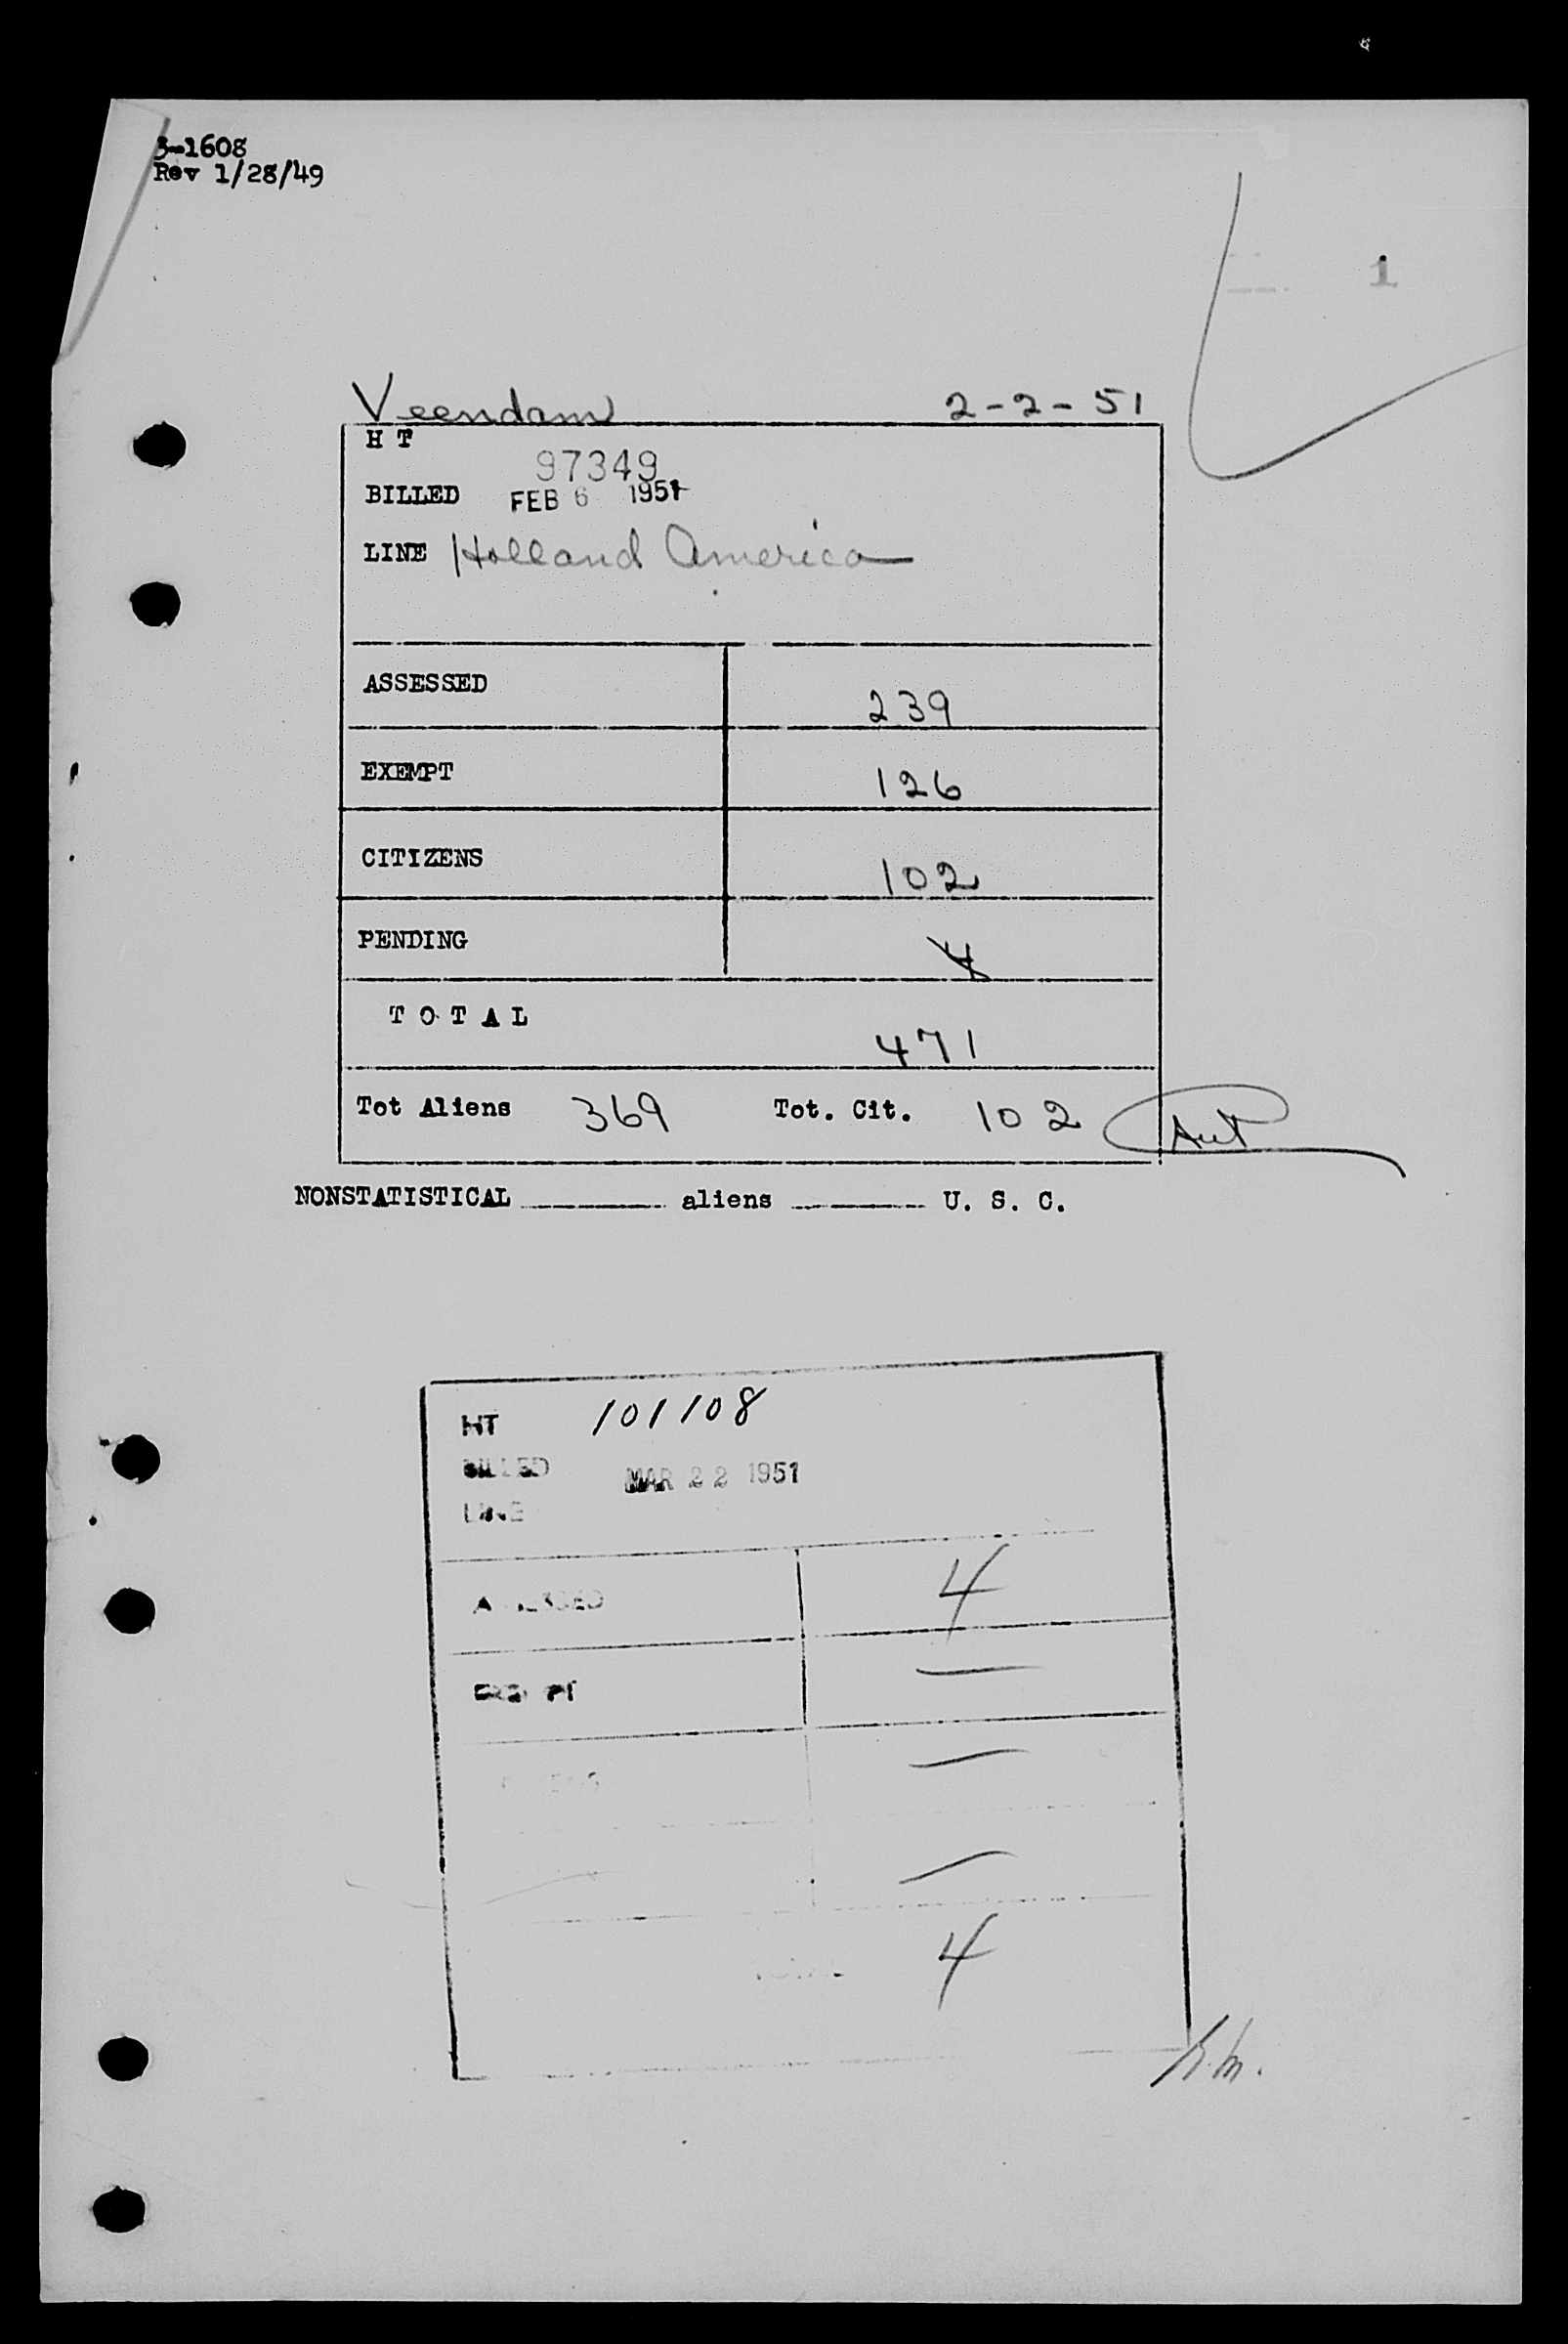 3-1608
Rev 1/28/49
1
Veendam 2-2-51
H T 97349
BILLED FEB 6 1951
LINE Holland America
ASSESSED 239
EXEMPT 126
CITIZENS 102
PENDING 4
TOTAL 471
Tot Aliens 369 Tot. Cit. 102
NONSTATISTICAL aliens U. S. C.
HT 101108
BILLED MAR 22 1951
LINE
ASSESSED 4
EXEMPT —
—
—
TOTAL 4